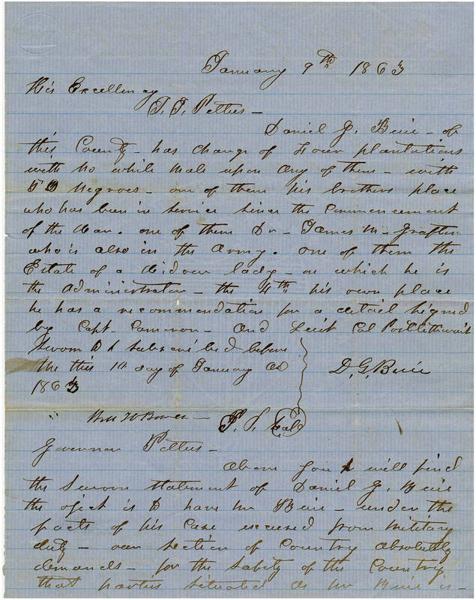 January 9th 1863
His Excellency
J. J. Pettus -
Daniel G. Buie - of
this County - has charge of four plantations
with no white male upon any of them - with
Negroes - one of them his brothers place
who has been in service since the commencement
of the War. one of them Dr - James M - Grafton
who is also in the Army. one of them the
Estate of a widow lady - on which he is
the administrator - the 4th his own place
he has a recommendation for a detail signed
by Capt. Cameron - And Leiut Col
Sworn to & subscribed before
me this 10 day of January AD
1863
D. G. Buie
Governor Pettus -
Above you will find
the sworn statement of Daniel G. Buie
the oject is to have Mr Buie - under the
facts of his case excused from military
duty - our section of Country absolutely
demands - for the safety of the Country
that parties situated as Mr Buie is -